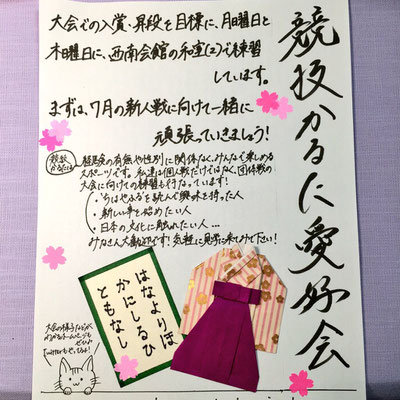 競技かるた愛好会
大会での入賞、昇段を目標に、月曜日と
木曜日に、西南会館の和室(2)で練習
しています。
まずは、7月の新人戦に向けて一緒に
頑張っていきましょう!
競技かるたは
経験の有無や性別に関係なく、みんなで楽しめる
スポーツです。私達は個人戦だけではなく、団体戦の
大会に向けての練習も行なっています!
・ちはやふるを読んで興味を持った人
・新しい事を始めたい人
・日本の文化に触れたい人…
みなさん大歓迎です!気軽に見学に来てみて下さい!
はなよりほ
かにしるひ
ともなし
大会の様子などが